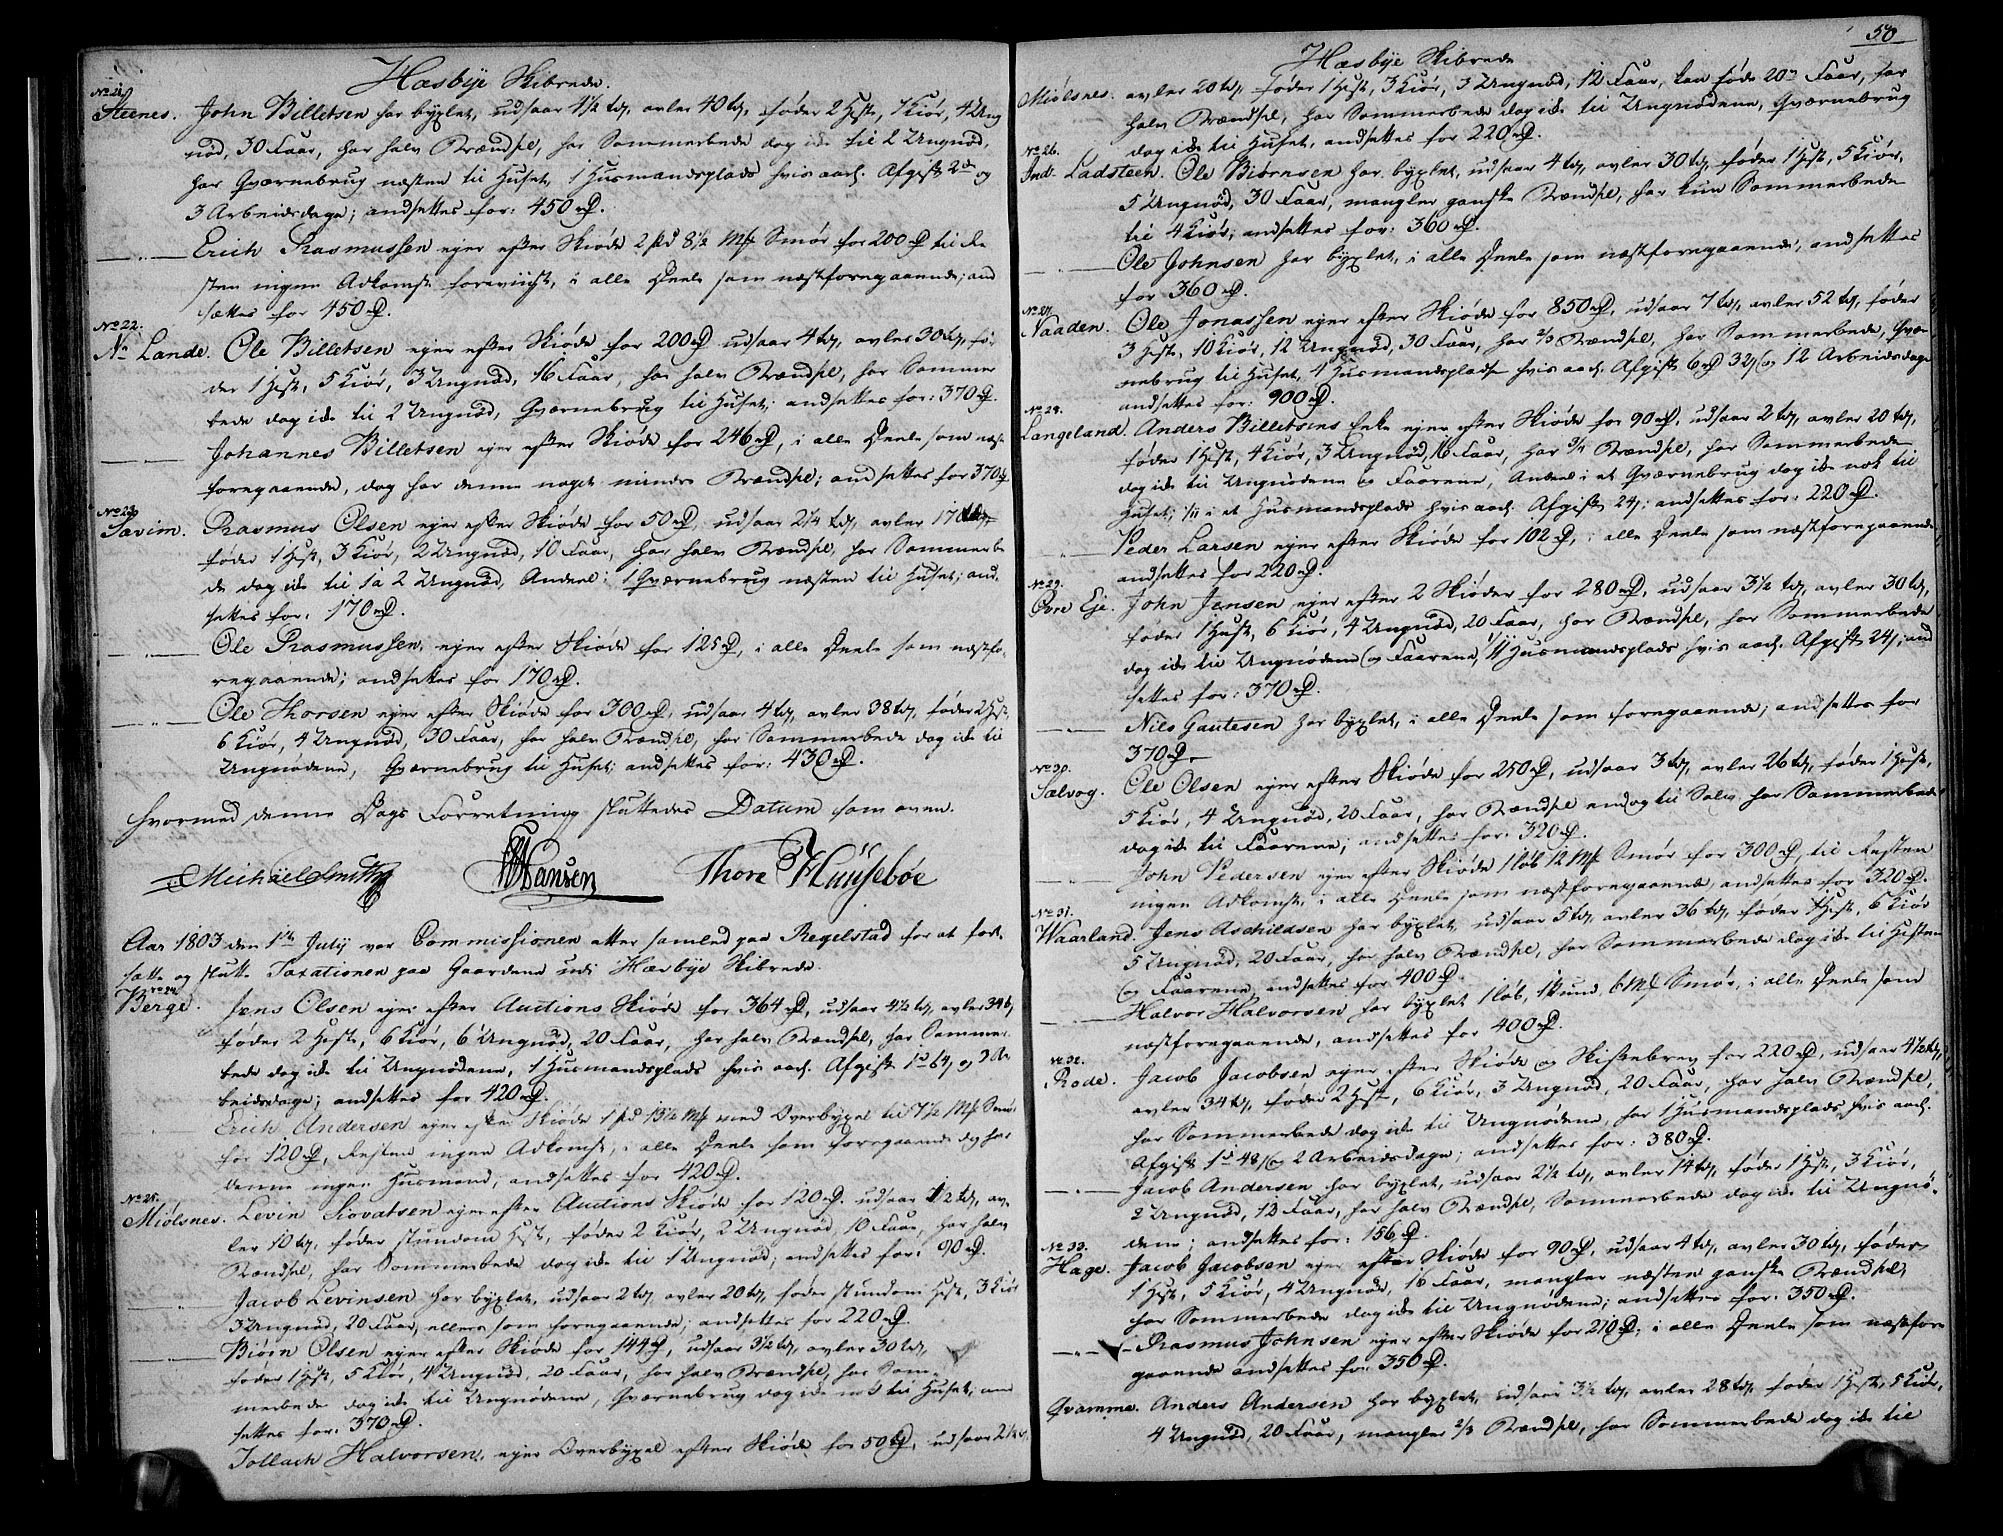 Hæsbye Skibrede.
No 21.
Steenes. John Billetsen har byxlet, udsaar 4 1/2 td, avler 40 td, føder 2 Hest, 7 Kiør, 4 Ung
nød, 30 Faar, har halv Brændsel, har Sommerbede dog ikke til 2 Ungnød,
har Qværnebrug næsten til Huset, 1 Husmandsplads hvis aarl. Afgift 2 og
3 Arbeidsdage; andsættes for: 450 rd.
Erich Rasmussen ejer efter Skiøde 2 pd 8 1/2 Mk Smør for 200 rd til Re
sten ingen Adkomst foreviist, i alle Deele som næstforegaaende; and
sættes for 450 rd.
No 22.
N. Lande. Ole Billetsen ejer efter Skiøde for 200 rd udsaar 4 td, avler 30 td, fø-
der 1 Hest, 5 Kiør, 3 Ungnød, 16 Faar, har halv Brændsel, har Sommer
bede dog ikke til 2 Ungnød, Qværnebrug til Huset; andsættes for: 370 rd.
Johannes Billetsen ejer efter Skiøde for 246 rd, i alle Deele som næst
foregaaende, dog har denne noget mindre Brændsel; andsættes for 370 rd
No 23.
Savim. Rasmus Olsen ejer efter Skiøde for 50 rd, udsaar 2 1/4 td, avler 17 td,
føder 1 Hest, 3 Kiør, 2 Ungnød, 10 Faar, har halv Brændsel, har Sommerbe
de dog ikke til 1 a 2 Ungnød, Andeel i 1 Qværnebrug næsten til Huset; and-
sættes for: 170 rd.
Ole Rasmussen, ejer efter Skiøde for 125 rd, i alle Deele som næstfo-
regaaende; andsættes for 170 rd.
Ole Thorsen ejer efter Skiøde for 300 rd, udsaar 4 td, avler 38 td, føder 2 Hest,
6 Kiør, 4 Ungnød, 30 Faar, har halv Brændsel, har Sommerbede dog ikke til
Ungnødene, Qværnebrug til Huset; andsættes for: 430 rd.
Hvormed denne Dags Forretning sluttedes Datum som oven.
Michael Smith Hansen Thore Huusebøe
Aar 1803 den 1ste July var Commissionen atter samled paa Regelstad for at fort-
sætte og slutte Taxationen paa Gaardene udi Hæsbye Skibrede.
No 24.
Berge. Jens Olsen ejer efter Auctions Skiøde for 364 rd, udsaar 4 1/2 td, avler 34 td,
føder 2 Heste, 6 Kiør, 6 Ungnød, 20 Faar, har halv Brændsel, har Sommer-
bede dog ikke til Ungnødene, 1 Husmandsplads hvis aarl. Afgift og 3 Ar
beidsdage; andsættes for 420 rd.
Erich Andersen ejer efter Skiøde 1 pd 13 1/2 Mk med Overbyxel til 7 1/2 Mk Smør
for 120 rd, Resten ingen Adkomst, i alle Deele som foregaaende dog har
denne ingen Husmand; andsættes for 420 rd.
No 25.
Miölsnes. Levin Siovatsen ejer efter Auctions Skiøde for 120 rd. udsaar 1 1/2 td, av
ler 10 td, føder stundom Hest, føder 2 Kiør, 2 Ungnød, 10 Faar, har halv
Brændsel, har Sommerbede dog ikke til 1 Ungnød; andsættes for: 90 rd.
Jacob Levinsen har byxlet, udsaar 2 td, avler 20 td, føder stundom Hest, 3 Kiør
3 Ungnød, 20 Faar, ellers som foregaaende; andsættes for 220 rd.
Biörn Olsen ejer efter Skiøde for 144 rd, udsaar 3 1/2 td, avler 30 td,
føder 1 Hest, 5 Kiør, 4 Ungnød, 20 Faar, har halv Brændsel, har Som-
merbede dog ikke til Ungnødene, Qværnebrug dog ikke nok til Huset, and
sættes for: 370 rd.
Tollach Halvorsen, ejer Overbyxel efter Skiøde for 50 rd, udsaar 2 1/2 td,
50
Hæsbye Skibrede
Miölsnes. avler 20 td, føder 1 Hest, 3 Kiør, 3 Ungnød, 12 Faar, kan føde 20 Faar, har
halv Brændsel, har Sommerbede dog ikke til Ungnødene, Qværnebrug
dog ikke til Huset, andsættes for 220 rd.
No 26.
Ind. Ladsteen. Ole Biörnsen har byxlet, udsaar 4 td, avler 30 td, føder 1 Hest, 5 Kiør,
5 Ungnød, 30 Faar, mangler ganske Brændsel, har kun Sommerbede
til 4 Kiør; andsættes for: 360 rd.
Ole Johnsen har byxlet, i alle Deele som næstforegaaende, andsættes
for 360 rd.
No 27.
Naaden. Ole Jonassen ejer efter Skiøde for 850 rd, udsaar 7 td, avler 52 td, føder
3 Hest, 10 Kiør, 12 Ungnød, 30 Faar, har 2/3 Brændsel, har Sommerbede, Qvær-
nebrug til Huset, 4 Husmandspladse hvis aarl. Afgift 6 rd 32 s og 12 Arbeidsdage
andsættes for: 900 rd.
No 28.
Langeland. Anders Billetsens Enke ejer efter Skiøde for 90 rd, udsaar 2 td, avler 20 td,
føder 1 Hest, 4 Kiør, 3 Ungnød, 16 Faar, har 3/4 Brændsel, har Sommerbede
dog ikke til Ungnødene og Faarene, Andeel i et Qværnebrug dog ikke nok til
Huset; i et Husmandsplads hvis aarl. Afgift 24 s; andsættes for: 220 rd.
Peder Larsen ejer efter Skiøde for 102 rd, i alle Deele som næstforegaaende,
andsættes for 220 rd.
No 29.
Övre Eje. John Jensen ejer efter 2 Skiøder for 280 rd, udsaar 3 1/2 td, avler 30 td,
føder 1 Hest, 6 Kiør, 4 Ungnød, 20 Faar, har Brændsel, har Sommerbede
dog ikke til Ungnødene og Faarene, 1 Husmandsplads hvis aarl. Afgift 24 s; and
sættes for: 370 rd.
Nils Gautesen har byxlet, i alle Deele som foregaaende; andsættes for
370 rd.
No 30.
Sælvog. Ole Olsen ejer efter Skiøde for 250 rd, udsaar 3 td, avler 26 td, føder 1 Hest,
5 Kiør, 4 Ungnød, 20 Faar, har Brændsel endog til Salg, har Sommerbede
dog ikke til Faarene; andsættes for: 320 rd.
John Pedersen ejer efter Skiøde 1 løb 12 Mk Smør for 300 rd, til Resten
ingen Adkomst, i alle Deele som næstforegaaende, andsættes for 320 rd.
No 31.
Waarland. Jens Aschildsen har byxlet, udsaar 5 td, avler 36 td, føder 1 Hest, 6 Kiør
5 Ungnød, 20 Faar, har halv Brændsel, har Sommerbede dog ikke til Hesten
og Faarene, andsættes for: 400 rd.
Halvor Halvorsen har byxlet 1 løb, 1 pund 6 Mk Smør, i alle Deele som
næstforegaaende, andsættes for 400 rd.
No 32.
Rode. Jacob Jacobsen ejer efter Skiøde og Skiftebrev for 220 rd, udsaar 4 1/2 td,
avler 34 td, føder 2 Hest, 6 Kiør, 3 Ungnød, 20 Faar, har halv Brændsel,
har Sommerbede dog ikke til Ungnødene, har 1 Husmandsplads hvis aarl.
Afgift 1 rd 48 s og 2 Arbeidsdage; andsættes for: 380 rd.
Jacob Andersen har byxlet, udsaar 2 1/2 td, avler 14 td, føder 1 Hest, 3 Kiør,
2 Ungnød, 12 Faar, har halv Brændsel, Sommerbede dog ikke til Ungnø-
dene; andsættes for: 156 rd.
No 33.
Hage. Jacob Jacobsen ejer efter Skiøde for 90 rd, udsaar 4 td, avler 30 td, føder
1 Hest, 5 Kiør, 4 Ungnød, 16 Faar, mangler næsten ganske Brændsel,
har Sommerbede dog ikke til Ungnødene; andsættes for: 350 rd.
Rasmus Johnsen ejer efter Skiøde for 210 rd, i alle Deele som næstfore
gaaende andsættes for: 350 rd.
Qvamme. Anders Andersen har byxlet, udsaar 3 1/2 td, avler 28 td, føder 1 Hest, 5 Kiør,
4 Ungnød, 20 Faar, mangler 2/3 Brændsel, har Sommerbede dog ikke til